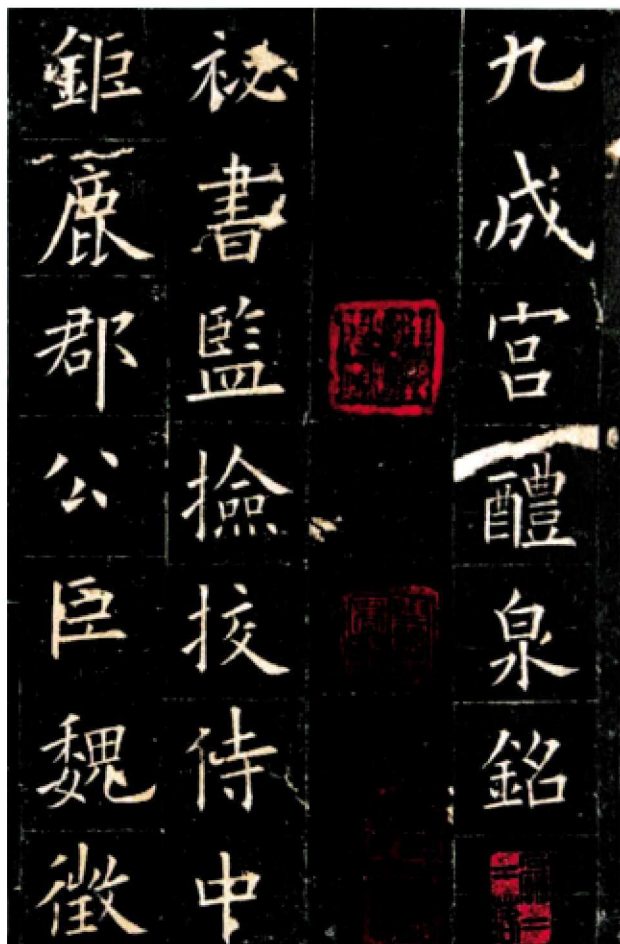 九成宮醴泉銘
祕書監撿挍侍中
鉅鹿郡公臣魏徵